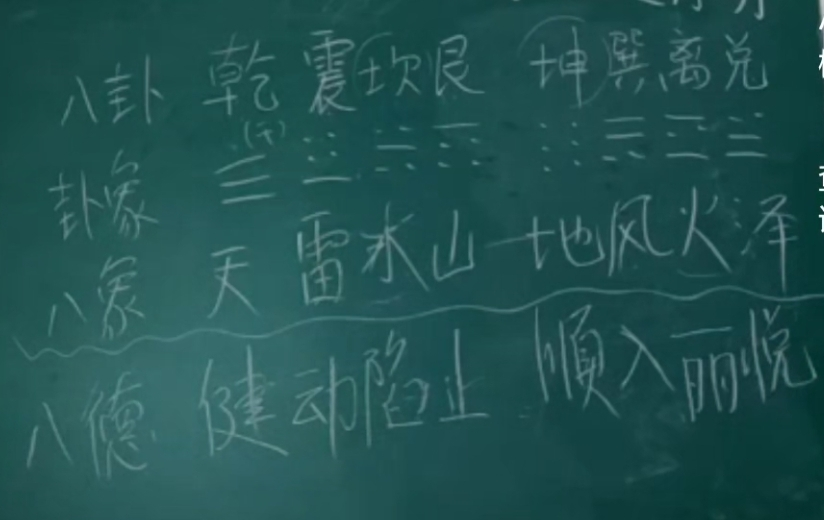 八卦 乾 震 坎 艮 坤 巽 离 兑
卦象 ☰ ☳ ☵ ☶ ☷ ☴ ☲ ☱
八象 天 雷 水 山 地 风 火 泽
八德 健 动 陷 止 顺 入 丽 悦